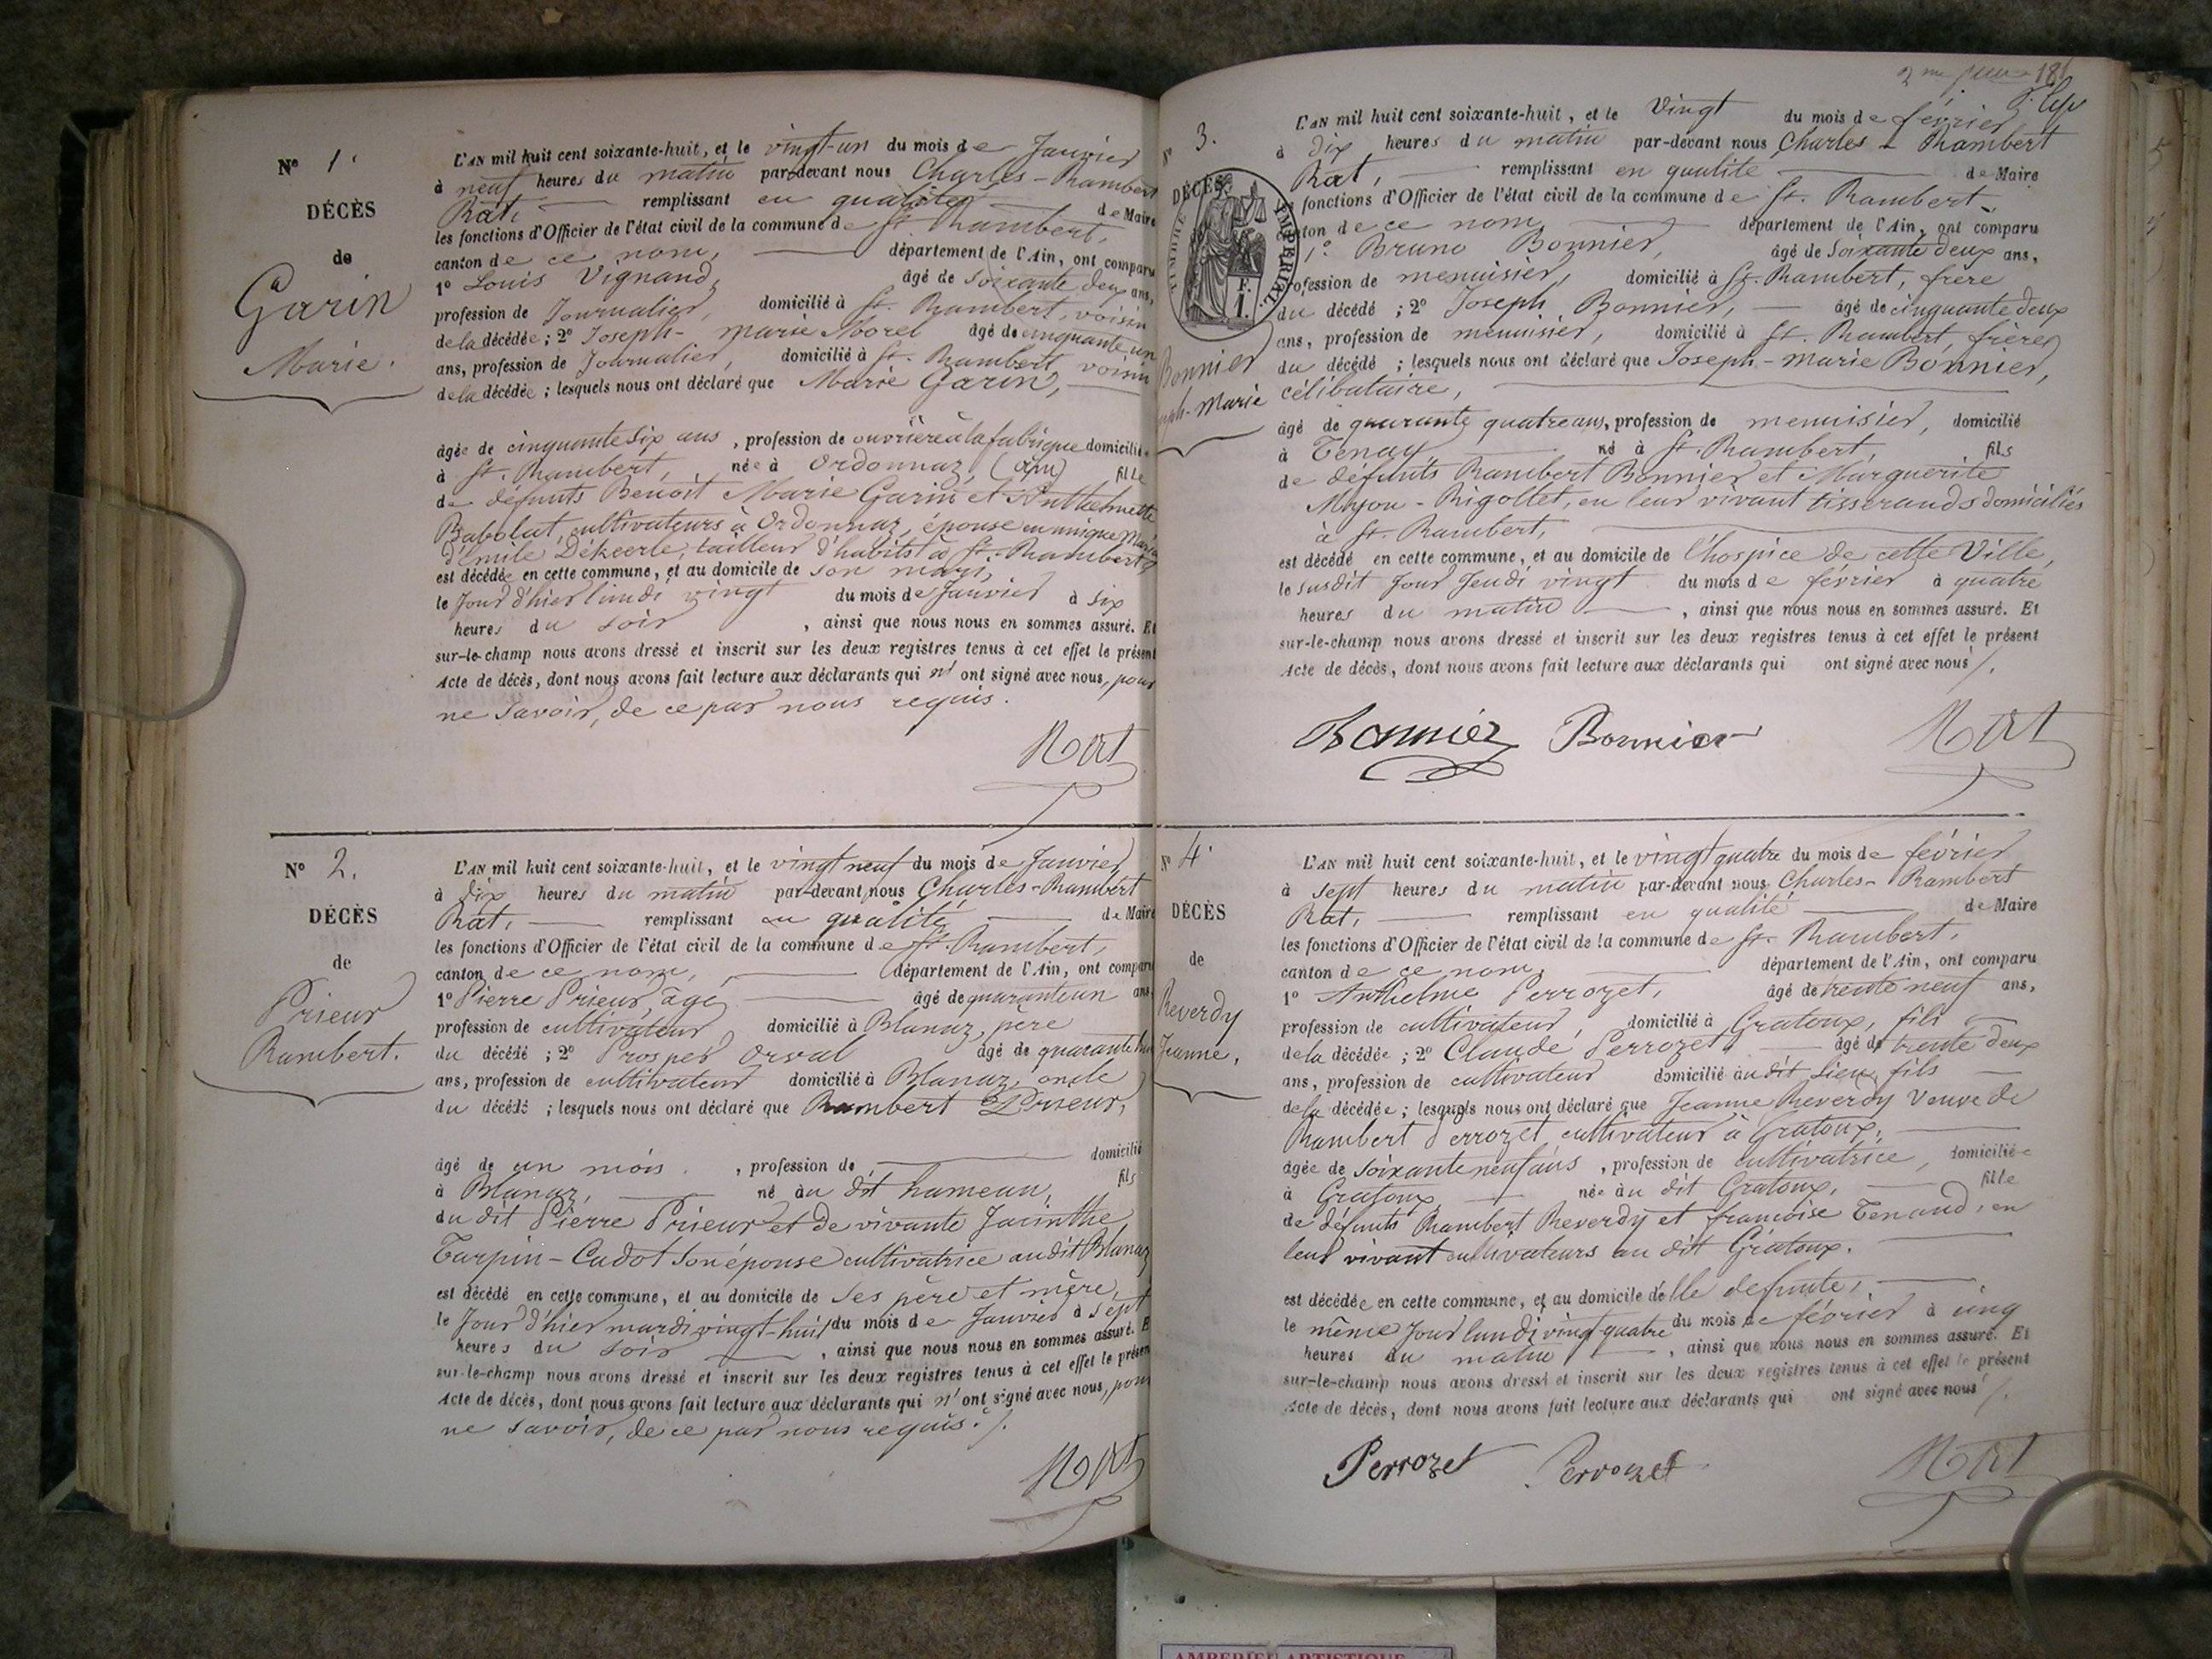 Nº 1.
DÉCÈS
de
Garin
Marie.
L'AN mil huit cent soixante-huit, et le vingt-un du mois de Janvier
à neuf heures du matin par-devant nous Charles-Rambert
Rat, remplissant en qualité de Maire
les fonctions d'Officier de l'état civil de la commune de St. Rambert,
canton de ce nom, département de l'Ain, ont comparu
1º Louis Vignand, âgé de soixante deux ans,
profession de Journalier, domicilié à St. Rambert, voisin
de la décédée ; 2º Joseph-Marie Morel âgé de cinquante un
ans, profession de Journalier, domicilié à St. Rambert voisin
de la décédée ; lesquels nous ont déclaré que Marie Garin,
âgée de cinquante six ans, profession de ouvrière à la fabrique domiciliée
à St. Rambert, née à Ordonnaz, (Ain) fille
de défunts Benoît Marie Garin et Anthelmette
Babolat, cultivateurs à Ordonnaz, épouse en unique
d'Emile Dékeerle, tailleur d'habits à St. Rambert,
est décédée en cette commune, et au domicile de son mari,
le Jour d'hier lundi vingt du mois de Janvier à six
heures du soir, ainsi que nous nous en sommes assuré. Et
sur-le-champ nous avons dressé et inscrit sur les deux registres tenus à cet effet le présent
Acte de décès, dont nous avons fait lecture aux déclarants qui n'ont signé avec nous, pour
ne savoir, de ce par nous requis.
Rat
Nº 2.
DÉCÈS
de
Prieur
Rambert.
L'AN mil huit cent soixante-huit, et le vingt neuf du mois de Janvier
à dix heures du matin par-devant nous Charles-Rambert
Rat, remplissant en qualité de Maire
les fonctions d'Officier de l'état civil de la commune de St. Rambert,
canton de ce nom, département de l'Ain, ont comparu
1º Pierre Prieur, âgé âgé de quarante un ans,
profession de cultivateur domicilié à Blanaz, père
du décédé ; 2º Prosper Orsal âgé de quarante
ans, profession de cultivateur domicilié à Blanaz, oncle
du décédé ; lesquels nous ont déclaré que Rambert Prieur,
âgé de un mois, profession de domicilié
à Blanaz, né au dit hameau, fils
du dit Pierre Prieur et de vivante Jacinthe
Turpin-Cadot son épouse cultivatrice au dit Blanaz
est décédé en cette commune, et au domicile de ses père et mère,
le Jour d'hier mardi vingt-huit du mois de Janvier à sept
heures du soir, ainsi que nous nous en sommes assuré. E
sur-le-champ nous avons dressé et inscrit sur les deux registres tenus à cet effet le présen
Acte de décès, dont nous avons fait lecture aux déclarants qui n'ont signé avec nous, pour
ne savoir, de ce par nous requis./.
Rat
3.
DÉCÈS
TIMBRE IMPÉRIAL.
F.
1.
Bonnier
seph-Marie
L'AN mil huit cent soixante-huit, et le Vingt du mois de février
à dix heures du matin par-devant nous Charles-Rambert
Rat, remplissant en qualité de Maire
les fonctions d'Officier de l'état civil de la commune de St. Rambert,
canton de ce nom département de l'Ain, ont comparu
1º Bruno Bonnier, âgé de Soixante deux ans,
profession de menuisier, domicilié à St. Rambert, frère
du décédé ; 2º Joseph Bonnier, âgé de cinquante deux
ans, profession de menuisier, domicilié à St. Rambert, frères
du décédé ; lesquels nous ont déclaré que Joseph-Marie Bonnier,
célibataire,
âgé de quarante quatre ans, profession de menuisier, domicilié
à Tenay né à St. Rambert, fils
de défunts Rambert Bonnier et Marguerite
Rigottet, en leur vivant tisserands domiciliés
à St. Rambert,
est décédé en cette commune, et au domicile de l'hospice de cette Ville,
le susdit Jour Jeudi vingt du mois de février à quatre
heures du matin, ainsi que nous nous en sommes assuré. Et
sur-le-champ nous avons dressé et inscrit sur les deux registres tenus à cet effet le présent
Acte de décès, dont nous avons fait lecture aux déclarants qui ont signé avec nous/.
Bonnier Bonnier Rat
Nº 4.
DÉCÈS
de
Reverdy
Jeanne,
L'AN mil huit cent soixante-huit, et le vingt quatre du mois de février
à sept heures du matin par-devant nous Charles-Rambert
Rat, remplissant en qualité de Maire
les fonctions d'Officier de l'état civil de la commune de St. Rambert,
canton de ce nom, département de l'Ain, ont comparu
1º Anthelme Perrozet, âgé de trente neuf ans,
profession de cultivateur, domicilié à Gratoux, fils
de la décédée ; 2º Claude Perrozet, âgé de trente deux
ans, profession de cultivateur domicilié au dit lieu, fils
de la décédée ; lesquels nous ont déclaré que Jeanne Reverdy Veuve de
Rambert Perrozet cultivateur à Gratoux,
âgée de soixante neuf ans, profession de cultivatrice, domiciliée
à Gratoux née au dit Gratoux, fille
de défunts Rambert Reverdy et françoise Tenand, en
leur vivant cultivateurs au dit Gratoux.
est décédée en cette commune, et au domicile de elle defunte,
le même Jour lundi vingt quatre du mois de février à cinq
heures du matin, ainsi que nous nous en sommes assuré. Et
sur-le-champ nous avons dressé et inscrit sur les deux registres tenus à cet effet le présent
Acte de décès, dont nous avons fait lecture aux déclarants qui ont signé avec nous/.
Perrozet Perrozet Rat
AMBERIEU ARTISTIQUE